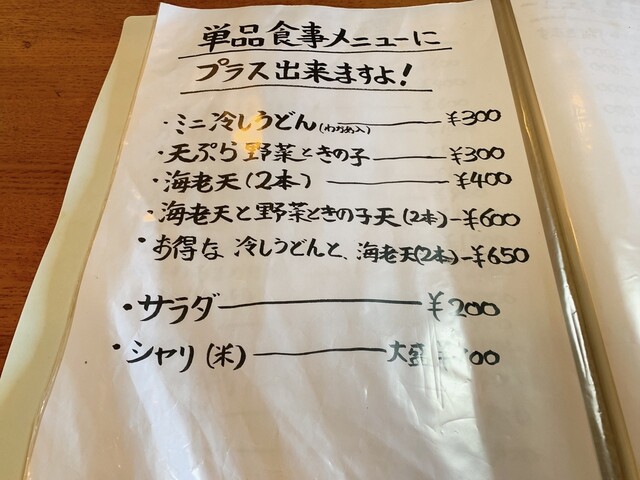 単品食事メニューに
プラス出来ますよ!
・ミニ冷しうどん(わかめ入)——¥300
・天ぷら野菜ときの子——¥300
・海老天(2本)——¥400
・海老天と野菜ときの子天(2本)-¥600
・お得な冷しうどんと、海老天(2本)-¥650
・サラダ——¥200
・シャリ(米)——大盛